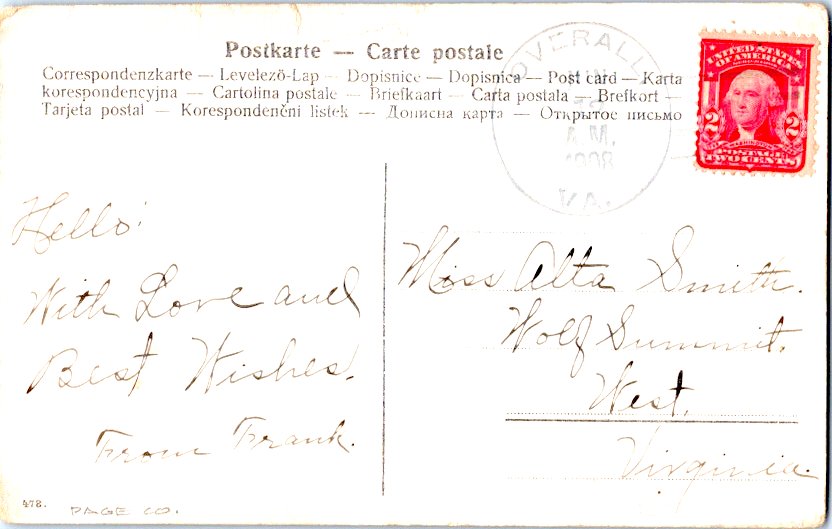 Postkarte — Carte postale
Correspondenzkarte — Levelező-Lap — Dopisnice — Dopisnica — Post card — Karta
korespondencyjna — Cartolina postale — Briefkaart — Carta postala — Brefkort —
Tarjeta postal — Korespondenční lístek — Дописна карта — Открытое письмо
OVERALL
A.M.
1908
VA.
UNITED STATES
OF AMERICA
2 2
POSTAGE
TWO CENTS
Hello!
With Love and
Best Wishes.
From Frank.
Miss Alta Smith.
Wolf Summit.
West.
Virginia.
478.
PAGE CO.